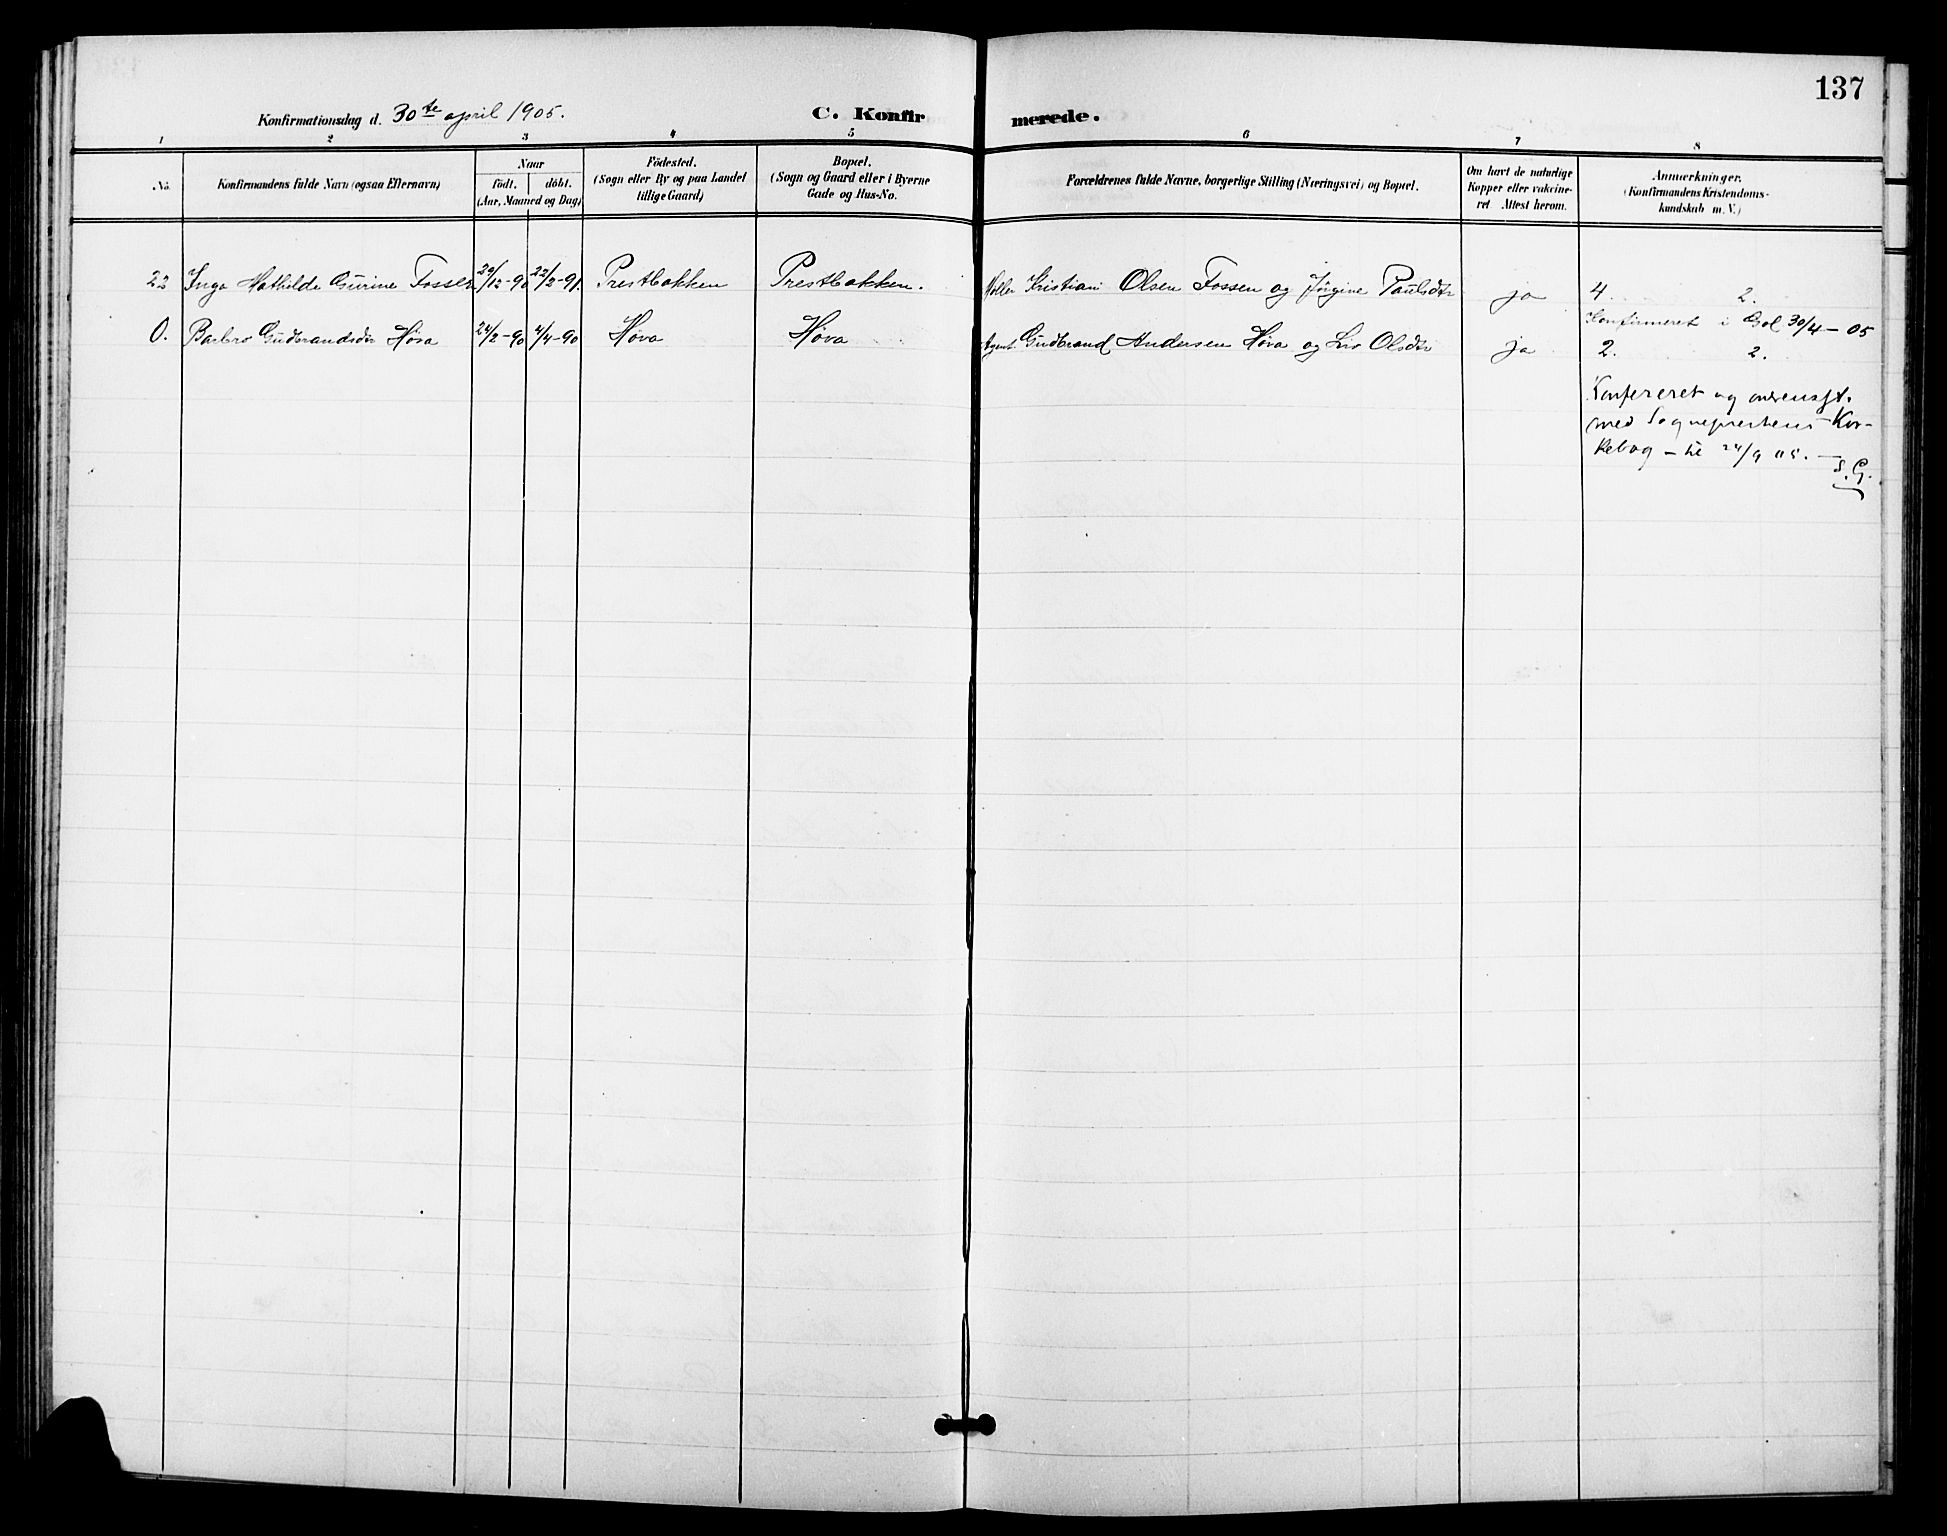 137
Konfirmationsdag d. 30te april 1905.
C. Konfirmerede.
1 2 3 4 5 6 7 8
No.
Konfirmandens fulde Navn (ogsaa Efternavn)
Naar
født. døbt.
(Aar, Maaned og Dag)
Fødested.
(Sogn eller By og paa Landet
tillige Gaard)
Bopæl.
(Sogn og Gaard eller i Byerne
Gade og Hus-No.
Forældrenes fulde Navne, borgerlige Stilling (Næringsvei) og Bopæl.
Om havt de naturlige
Kopper eller vaccine-
ret Attest herom.
Anmærkninger.
(Konfirmandens Kristendoms-
kundskab m. V.)
22 Inga Mathilde Gurine Fossen /12-90 22/2-91. Prestbakken Prestbakken. Møller Kristian Olsen Fossen og Jørgine Paulsdtr ja 4. 2.
Konfirmeret i Gol 30/4-05
0. Barbro Gudbrandsdtr Høva 24/2-90 4/4-90 Høva Høva Agent Gudbrand Andersen Høva og Liv Olsdtr ja 2. 2.
Konfereret og overensst.
med Sogneprestens Kir-
kebog - til 24/9 05. —
S. G.